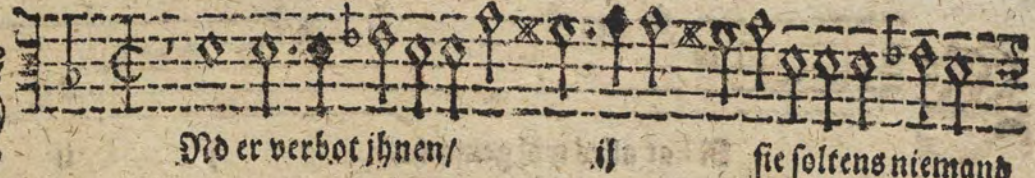 Nd er verbot jhnen/ ij sie soltens niemand